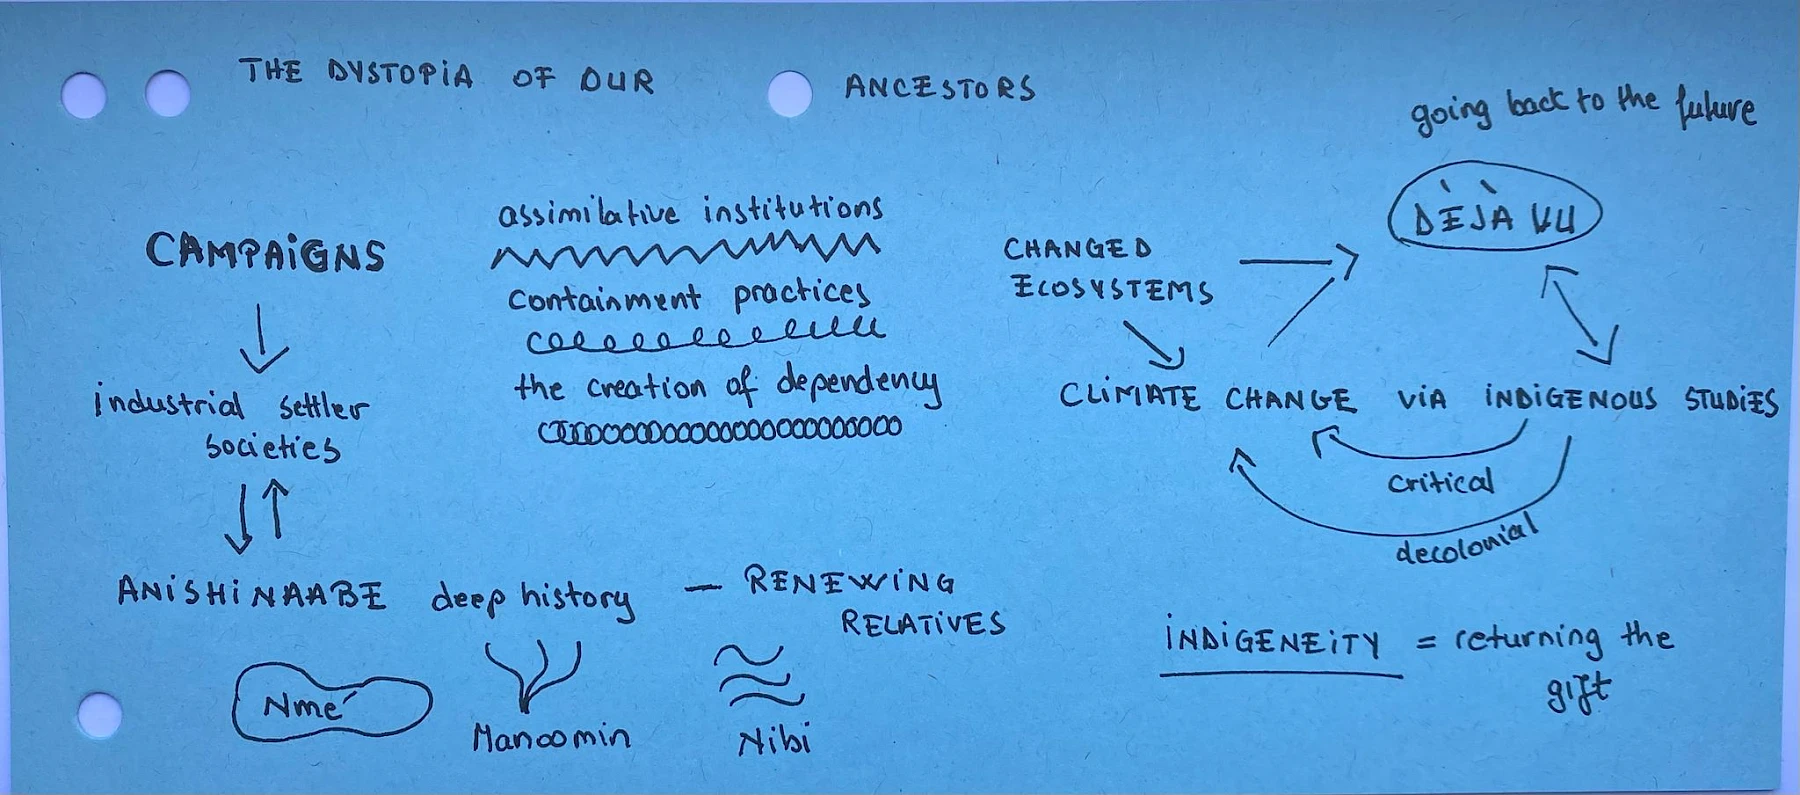 THE DYSTOPiA OF OUR ANCESTORS
going back to the future
DÉJÀ VU
CAMPAiGNS
industrial settler
societies
assimilative institutions
containment practices
the creation of dependency
CHANGED
ECOSYSTEMS
CLiMATE CHANGE ViA iNDiGENOUS STUDiES
critical
decolonial
ANiSHiNAABE deep history — RENEWiNG
RELATiVES
Nmé
Manoomin
Nibi
iNDiGENEiTY = returning the
gift